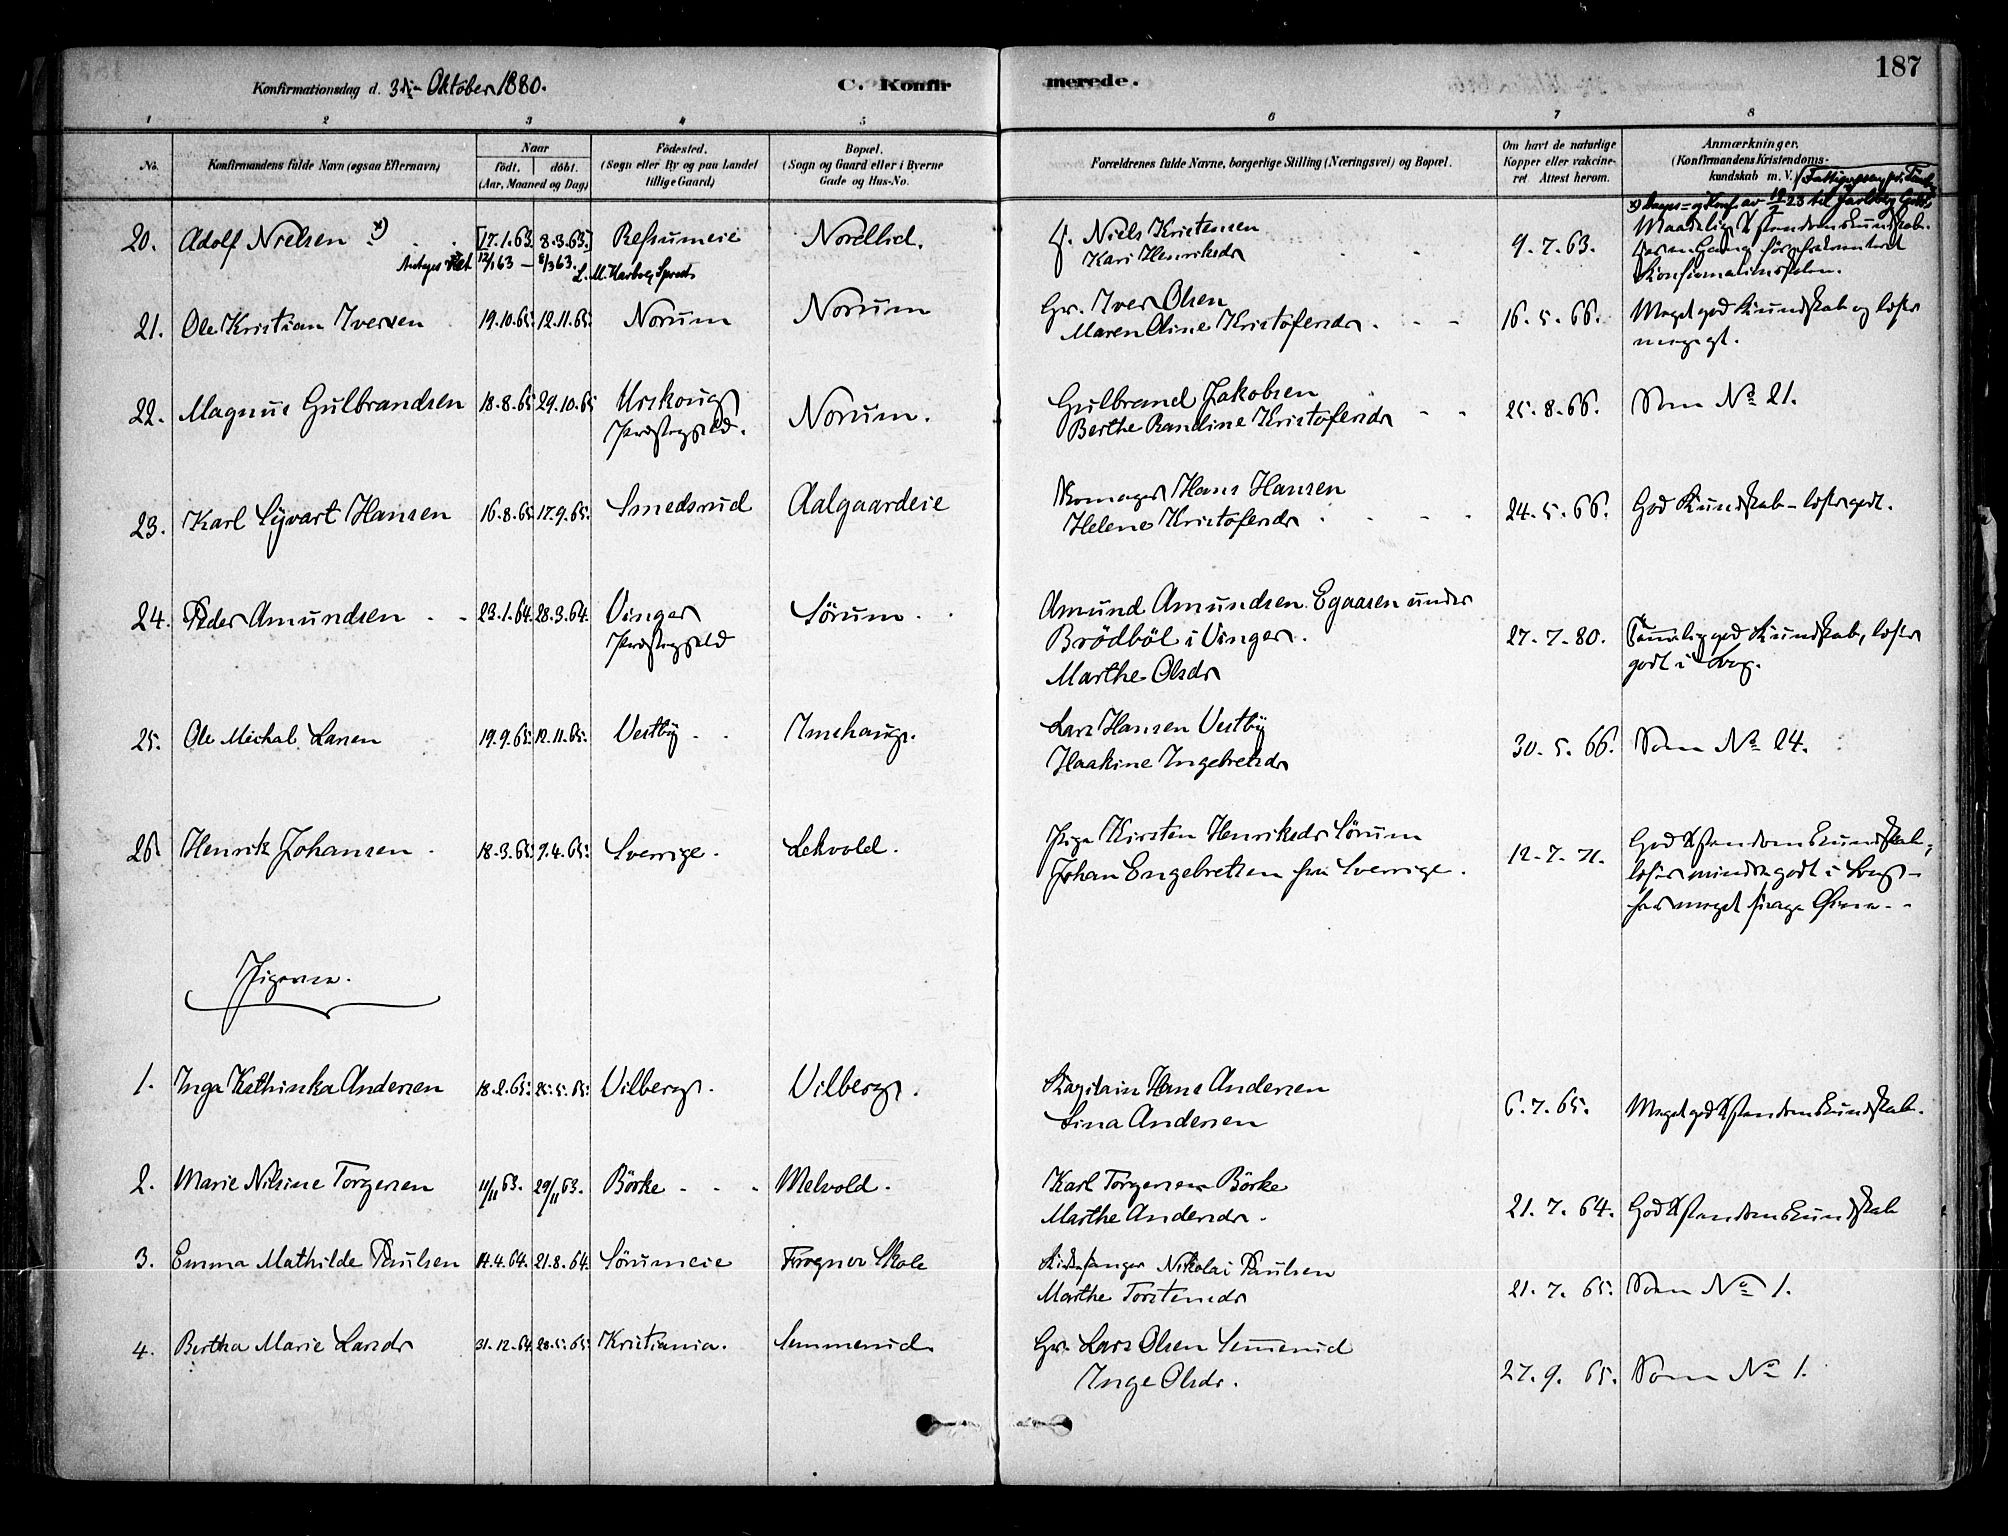 187
Konfirmationsdag d. 3die Oktober 1880.
C. Konfirmerede.
1 2 3 4 5 6 7 8
No. Konfirmandens fulde Navn (ogsaa Efternavn) Naar født, døbt. (Aar, Maaned og Dag) Fødested. (Sogn eller By og paa Landet tillige Gaard) Bopæl. (Sogn og Gaard eller i Byerne Gade og Hus-No. Forældrenes fulde Navne, borgerlige Stilling (Næringsvei) og Bopæl. Om havt de naturlige Kopper eller vakcineret Attest herom. Anmærkninger. (Konfirmandens Kristendomskundskab m. V.)
20. Adolf Nielsen x) 17.1.63. 8.3.63. Refsumeie Nordlid. Niels Kristensen 9.7.63. Maadelig Xstendomskundskab.
Kari Henriksdr
Konfirmationsalderen.
21. Ole Kristian Iversen 19.10.65. 12.11.65. Norum Norum Gr. Iver Olsen 16.5.66. Meget god Kundskab og læser
Maren Oline Kristofersdr. meget gt.
22. Magnus Gulbrandsen 18.8.65 29.10.65 Urskoug Norum. Gulbrand Jakobsen 25.8.66. Som No 21.
Præstegjeld. Berthe Randine Kristofersdr
23. Karl Syvart Hansen 16.8.65 17.9.65. Smedsrud Aalgaardeie Skomager Hans Hansen 24.5.66. God Kundskab - læser godt.
Helene Kristofersdr
24. Peder Amundsen 23.1.64. 28.3.64. Vinger Sörum Amund Amundsen Egaasen under 27.7.80. Temmelig god Kundskab, læser
Præstegjeld Brödböl i Vinger. godt i Bog.
Marthe Olsdr
25. Ole Michal Larsen 19.9.65. 12.11.65. Vestby Imehaug. Lars Hansen Vestby 30.5.66. Som No 24.
Haakine Ingebretsdr
26. Henrik Johansen 18.3.65. 9.4.65. Sverrige. Lekvold. Pige Kirsten Henriksdr Sörum 12.7.71. God Xstendomskundskab,
Johan Engebretsen fra Sverrige. læser mindre godt i Bog -
har meget svage Öine.
Pigerne.
1. Inga Kathinka Andersen 18.2.65. 25.5.65. Vilberg. Vilberg. Kaptain Hans Andersen 6.7.65. Meget god Xstendomskundskab.
Lina Andersen
2. Marie Nilsine Torgersen 11/11 63. 29/11 63. Börke Melvold. Karl Torgersen Börke 21.7.64. God Xstendomskundskab
Marthe Andersdr.
3. Emma Mathilde Paulsen 14.4.64. 21.8.64. Sörumeie Frogner Skole Kirkesanger Nikolai Paulsen 21.7.65. Som No 1.
Marthe Torstensdr
4. Bertha Marie Larsdr 31.12.64. 28.5.65. Kristiania. Semmerud. Gr. Lars Olsen Semmerud 27.9.65. Som No 1.
Inge Olsdr.